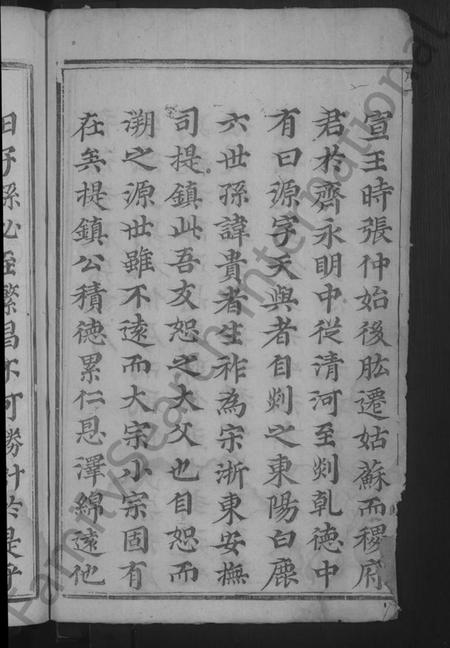 宣王時張仲始後肱遷姑蘇而稷府
君於齊永明中從清河至剡乾德中
有曰源字天與者自剡之東陽白鹿
六世孫諱貴者生祚為宋浙東安撫
司提鎮此吾友恕之大父也自恕而
溯之源世雖不遠而大宗小宗固有
在矣提鎮公積德累仁恩澤綿遠他
日子孫必至繁昌不可勝計於是乎
FamilySearch International